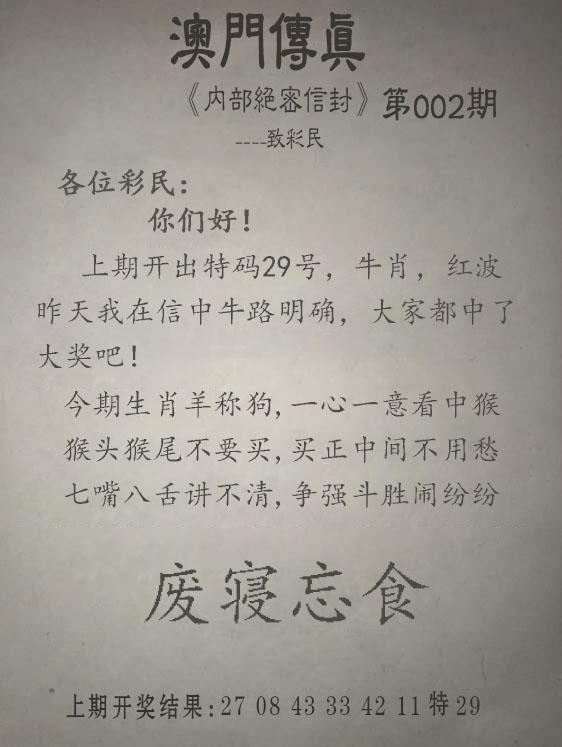 澳門傳眞
《内部絕密信封》第002期
----致彩民
各位彩民:
你们好!
上期开出特码29号，牛肖，红波
昨天我在信中牛路明确，大家都中了
大奖吧!
今期生肖羊称狗,一心一意看中猴
猴头猴尾不要买,买正中间不用愁
七嘴八舌讲不清,争强斗胜闹纷纷
废寝忘食
上期开奖结果:27 08 43 33 42 11 特 29